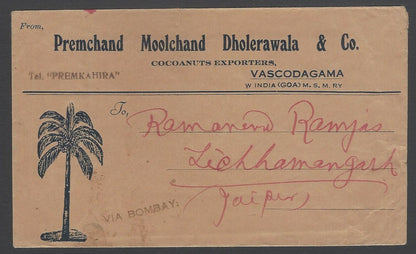 From,
Premchand Moolchand Dholerawala & Co.
COCOANUTS EXPORTERS,
Tel. "PREMKAHIRA"
VASCODAGAMA
W INDIA (GOA) M. S. M. RY
To,
Ramanend Ramjas
Lichhamangarh
Jaipur
VIA BOMBAY.